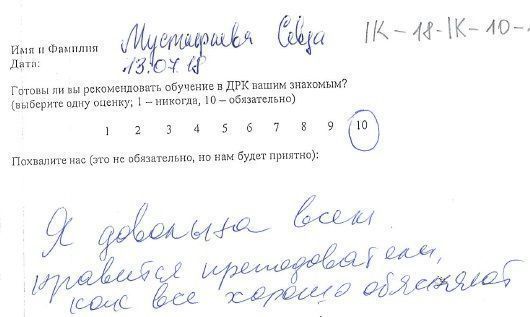 Мустафаева Севда IK-18-IK-10-
Имя и Фамилия
Дата: 13.07.18
Готовы ли вы рекомендовать обучение в ДРК вашим знакомым?
(выберите одну оценку; 1 – никогда, 10 – обязательно)
1 2 3 4 5 6 7 8 9 10
Похвалите нас (это не обязательно, но нам будет приятно):
Я довольна всем
нравится преподователи,
как все хорошо обясняют